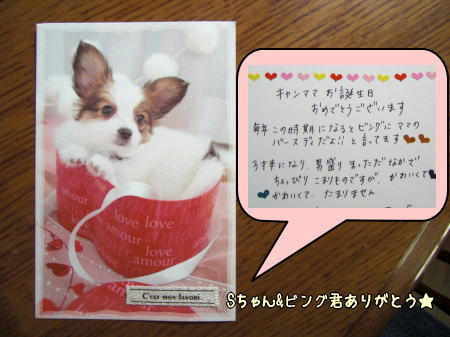 キャンママ お誕生日
おめでとうございます
毎年 この時期になるとビングに ママの
バースデイだよ!! と言ってます
3才半になり 男盛り まっただなかで
ちょっぴり こまりものですが、かわいくて
かわいくて、たまりません
love love
amour
love love
love
amour
love
C'EST MON FAVORI.
Sちゃん&ビング君ありがとう★